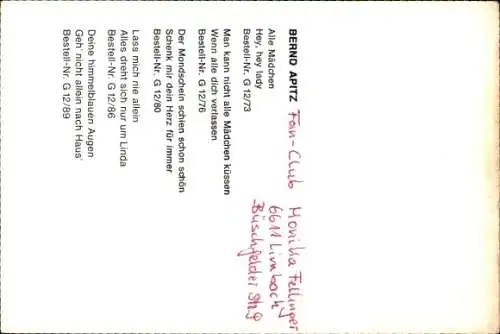 BERND APITZ
Alle Mädchen
Hey, hey lady
Bestell-Nr. G 12/73
Man kann nicht alle Mädchen küssen
Wenn alle dich verlassen
Bestell-Nr. G 12/76
Der Mondschein schien schon schön
Schenk mir dein Herz für immer
Bestell-Nr. G 12/80
Lass mich nie allein
Alles dreht sich nur um Linda
Bestell-Nr. G 12/86
Deine himmelblauen Augen
Geh' nicht allein nach Haus'
Bestell-Nr. G 12/89
Fan-Club Monika Fellinger
6611 Limbach
Büschfelder Str. 9